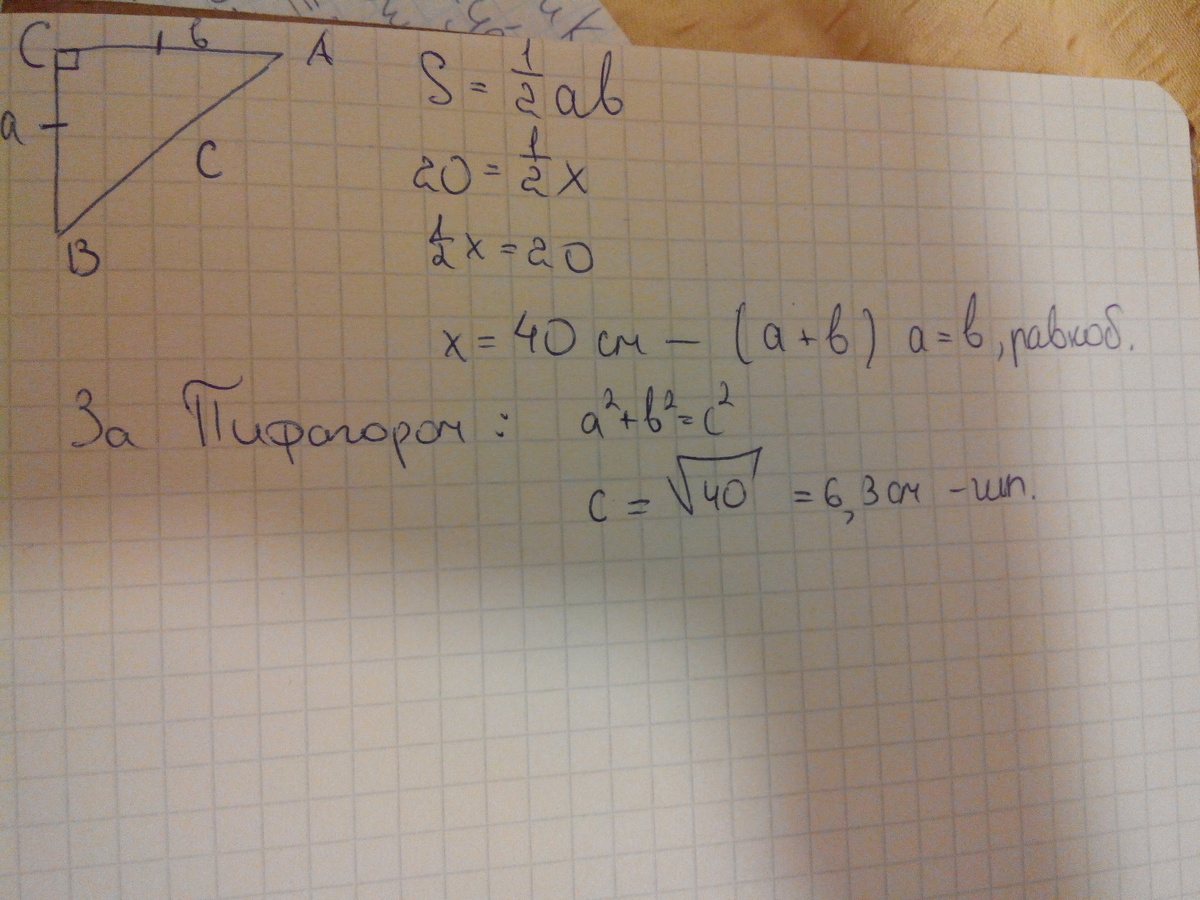 C b A
a
C
B
S = 1/2 ab
20 = 1/2 x
1/2 x = 20
x = 40 см — (a + b) a = b, равноб.
За Пифагором: a² + b² = c²
c = √40 = 6,3 см - шп.